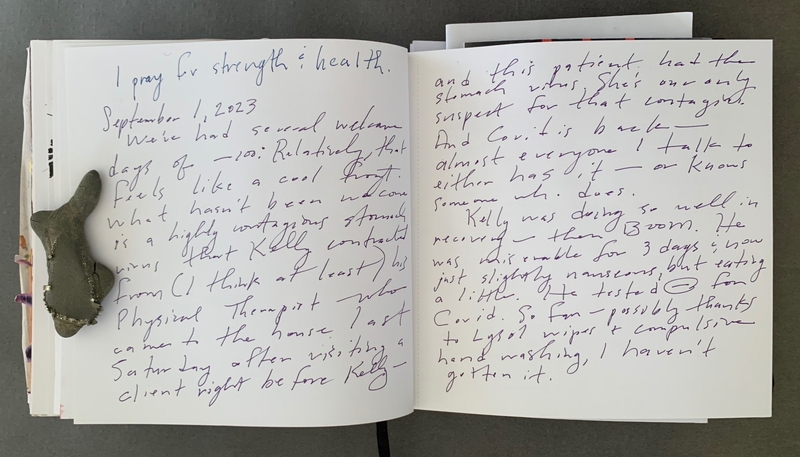 I pray for strength & health.
September 1, 2023
We've had several welcome
days of -100: Relatively, that
feels like a cool front.
What hasn't been welcome
is a highly contagious stomach
virus that Kelly contracted
from (I think at least) his
Physical Therapist - who
came to the house last
Saturday after visiting a
client right before Kelly -
and this patient had the
stomach virus. She's our only
suspect for that contagion.
And Covid is back -
almost everyone I talk to
either has it - or knows
someone who does.
Kelly was doing so well in
recovery - then Boom. He
was miserable for 3 days & now
just slightly nauseous, but eating
a little. He tested - for
Covid. So far - possibly thanks
to Lysol wipes & compulsive
hand washing, I haven't
gotten it.